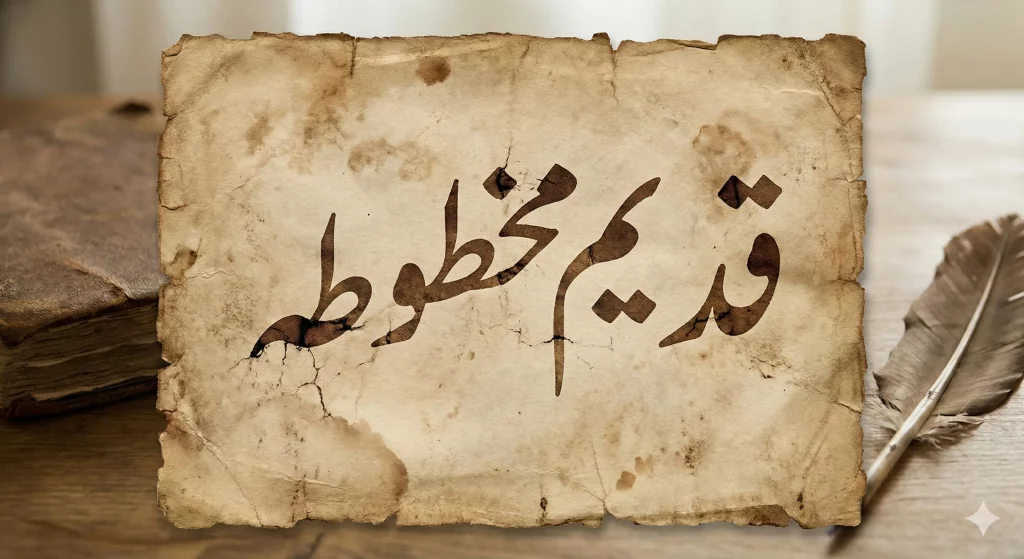 قدیم مخطوطہ